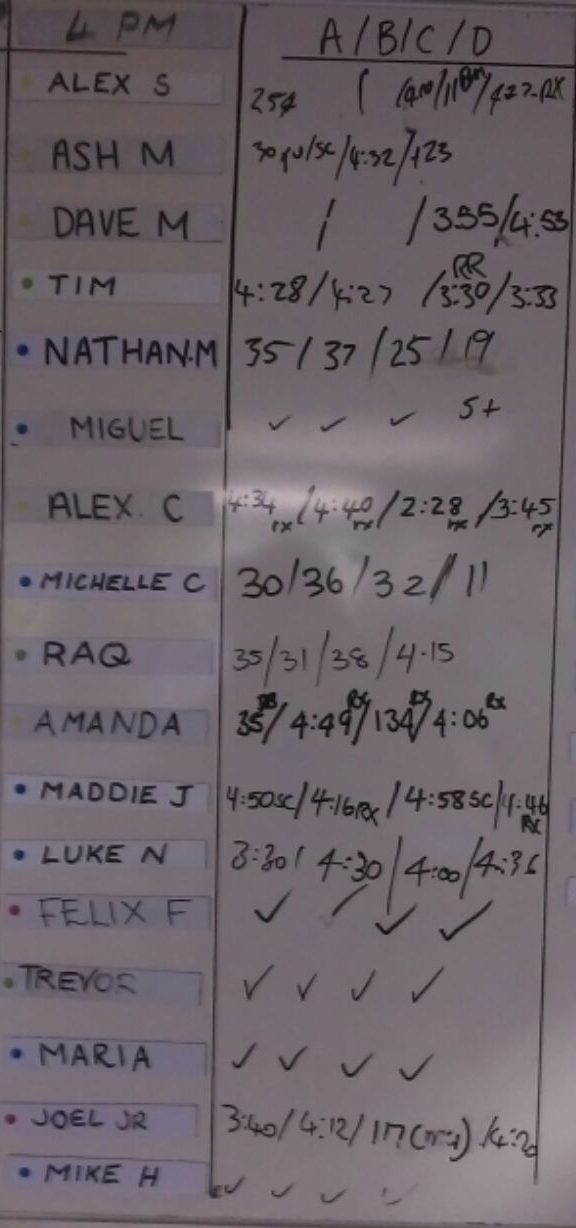 4 PM A/B/C/D
ALEX S 25 / /11 /4:27 RX
ASH M 30 /sc/4:32/123
DAVE M / /355/4:53
RR
TIM 4:28/4:27 /3:30/3:33
NATHAN.M 35/37/25/19
MIGUEL ✓ ✓ ✓ 5+
ALEX. C 4:34 rx/4:40 rx/2:28 rx/3:45 rx
MICHELLE C 30/36/32//11
RAQ 35/31/38/4.15
AMANDA 35/4:49 Rx/134 Rx/4:06 Rx
MADDIE J 4:50SC/4:16RX/4:58SC/4:46 RX
LUKE N 3:30/4:30/4:00/4:36
FELIX F ✓ ✓ ✓ ✓
TREVOR ✓ ✓ ✓ ✓
MARIA ✓ ✓ ✓ ✓
JOEL JR 3:40/4:12/117 /4:20
MIKE H ✓ ✓ ✓ ✓